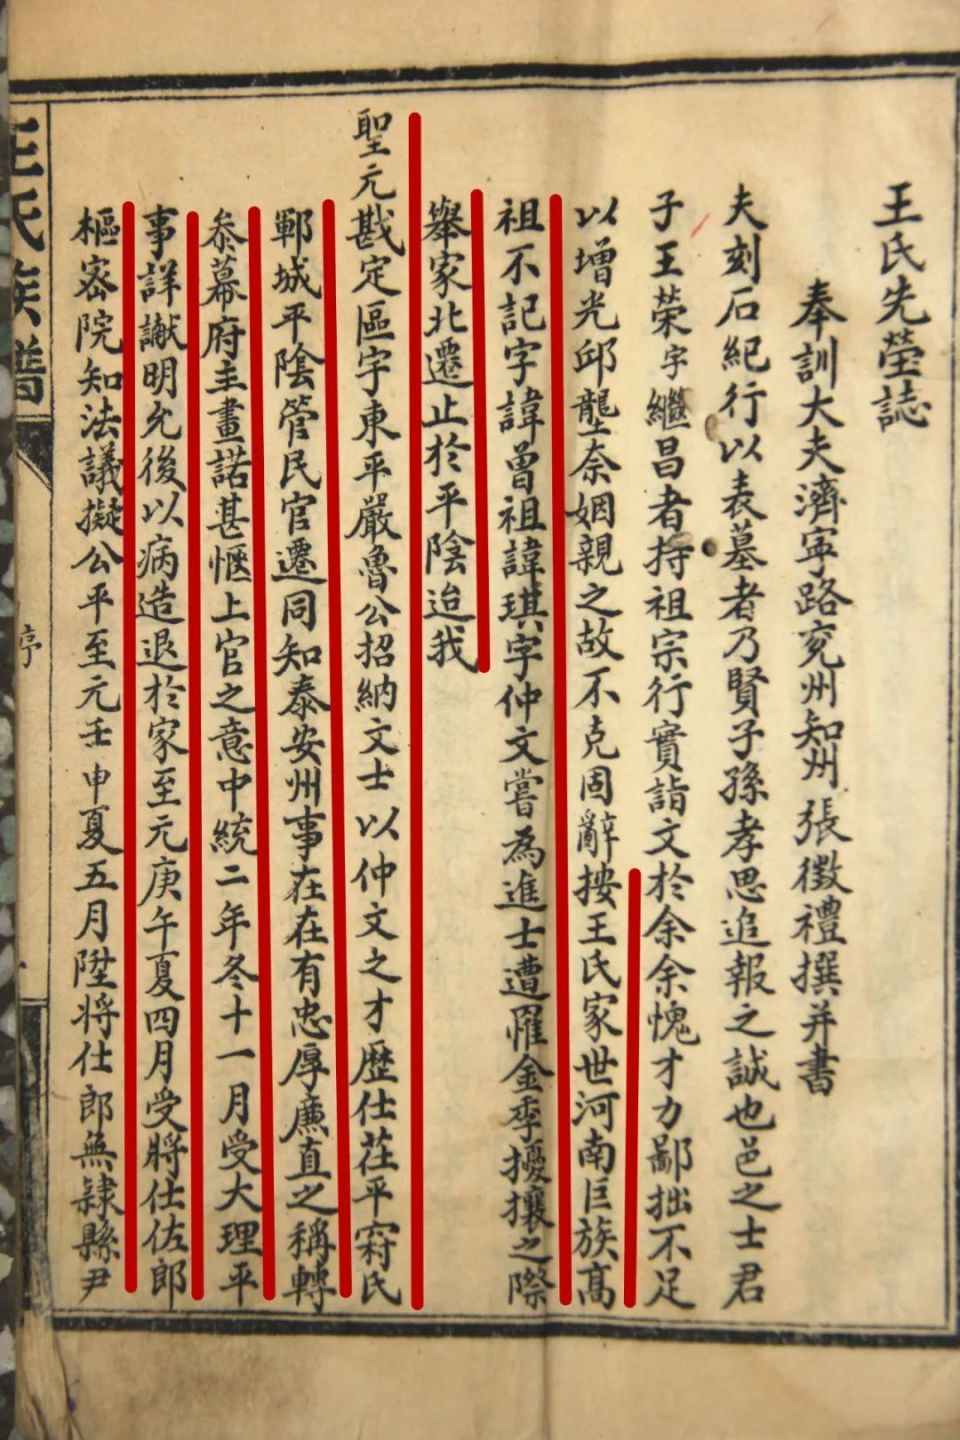 王氏先塋誌
奉訓大夫濟寧路兖州知州張徵禮撰并書
夫刻石紀行以表墓者乃賢子孫孝思追報之誠也邑之士君
子王荣字繼昌者持祖宗行實詣文於余余愧才力鄙拙不足
以增光邱壟奈姻親之故不克固辭按王氏家世河南巨族髙
祖不記字諱曾祖諱琪字仲文嘗為進士遭罹金季擾攘之際
舉家北遷止於平陰迨我
聖元戡定區宇東平嚴魯公招納文士以仲文之才歷仕茌平窮氏
鄆城平陰管民官遷同知泰安州事在在有忠厚廉直之稱轉
叅幕府主畫諾甚愜上官之意中統二年冬十一月受大理平
事詳讞明允後以病造退於家至元庚午夏四月受將仕佐郎
樞密院知法議擬公平至元壬申夏五月陞將仕郎無隷縣尹
王氏族譜
序